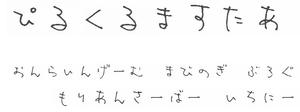 ぴるくるますたあ
おんらいんげーむ まびのぎ ぶろぐ
もりあんさーばー いちにー